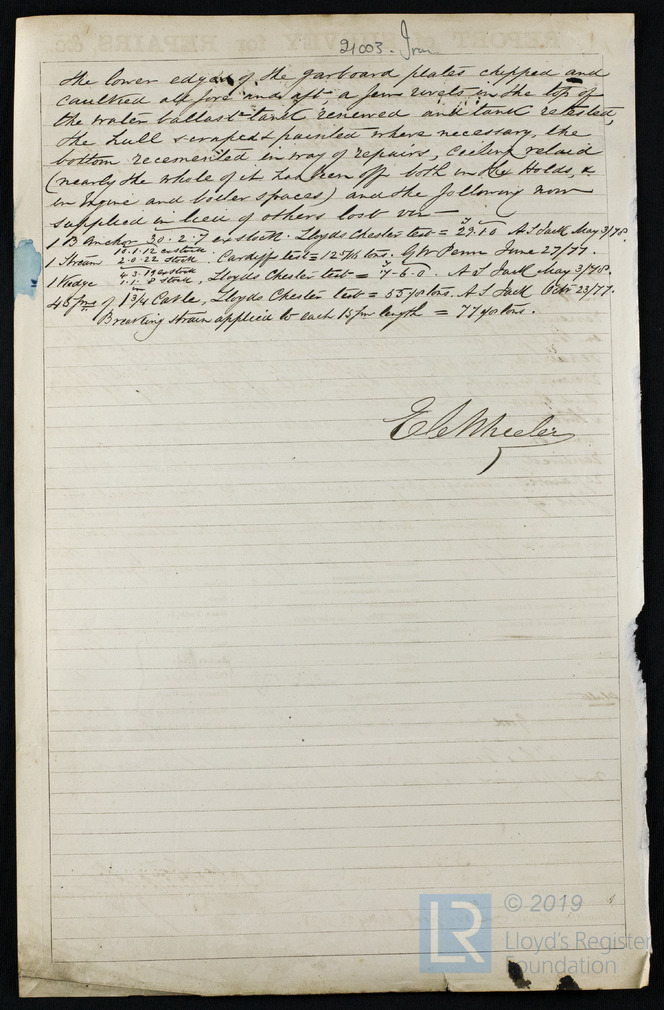 REPORT of SURVEY for REPAIRS, &c.
21003. Iron
the lower edges of the garboard plates chipped and
caulked all fore and aft, a few rivets in the top of
the water ballast tank renewed and tank retested,
the hull scraped & painted where necessary, the
bottom recemented in way of repairs, Ceiling relaid
(nearly the whole of it has been off both in the Holds, &
in Engine and boiler spaces) and the following now
supplied in lieu of others lost viz—
1 B Anchor 20.2.7 ex stock. Lloyds Chester test = 29.1.0 A S Jack May 3/78.
1 Stream 10.1.12 ex stock 2.0.22 stock. Cardiff test = 12 5/16 tons. G W Penn June 27/77.
1 Kedge 4.3.19 ex stock 1.1.8 stock, Lloyds Chester test = 7-6-0. A S Jack May 3/78.
45 fms of 1 3/4 Cable, Lloyds Chester test = 55 1/8 tons. A S Jack Octr 23/77.
Breaking strain applied to each 15 fm length = 77 1/8 tons.
E C Wheeler
© 2019
LR
Lloyd's Register
Foundation